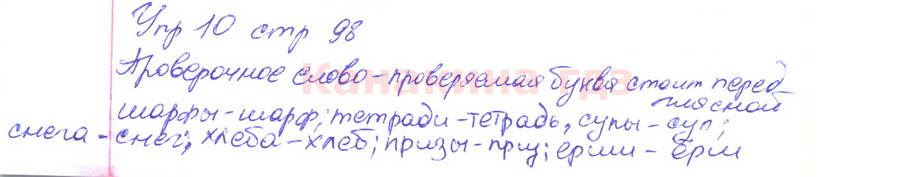 Упр 10 стр 98
Проверочное слово - проверяемая буква стоит перед гласной
шарфы - шарф; тетради - тетрадь, супы - суп;
снега - снег; хлеба - хлеб; призы - приз; ерши - ёрш